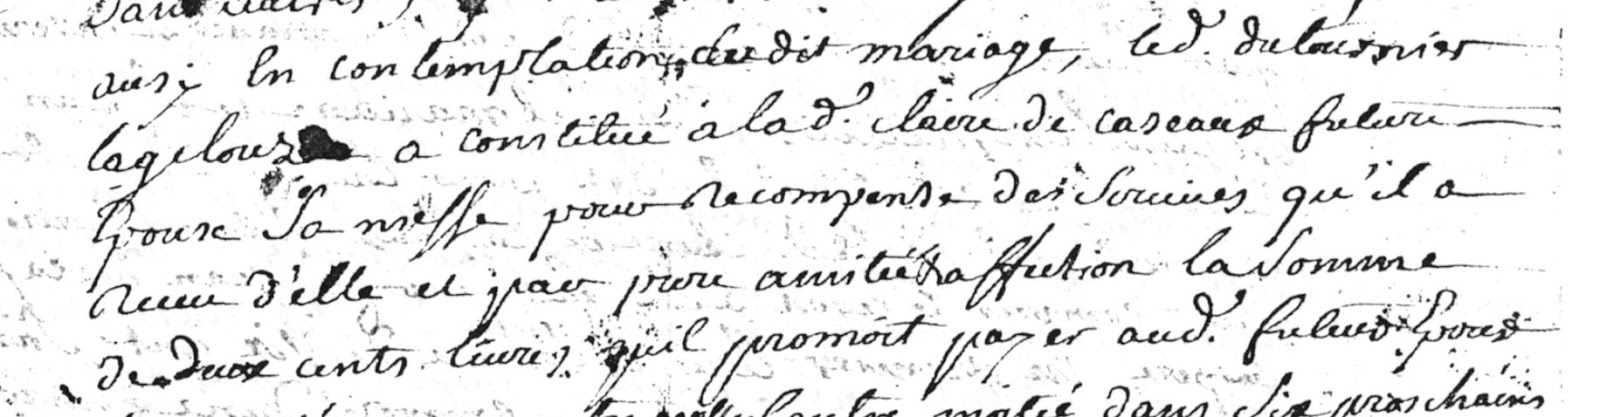 ausy En contemplation dudit mariage, led. dutournier
lagelouze a constitué à la d. claire de caseaux future
Epouse Sa niesse pour recompense des Services qu'il a
receu d'elle et par pure amitié & affection la Somme
de deux cents livres qu'il promoit payer aud. futurs Epoux
moitié dans Six prochains